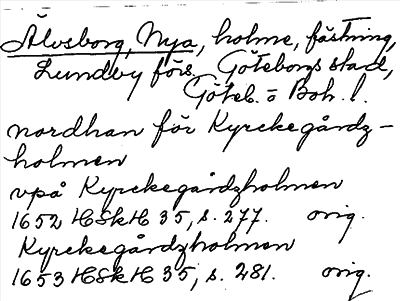 Älvsborg, Nya, holme, fästning,
Lundby förs. Göteborgs stad,
Göteb. o Boh. l.
nordhan för Kyrckegårdz-
holmen
vpå Kyrckegårdzholmen
1652 HSkH 35, s. 277. orig.
Kyrckegårdzholmen
1653 HSkH 35, s. 281. orig.